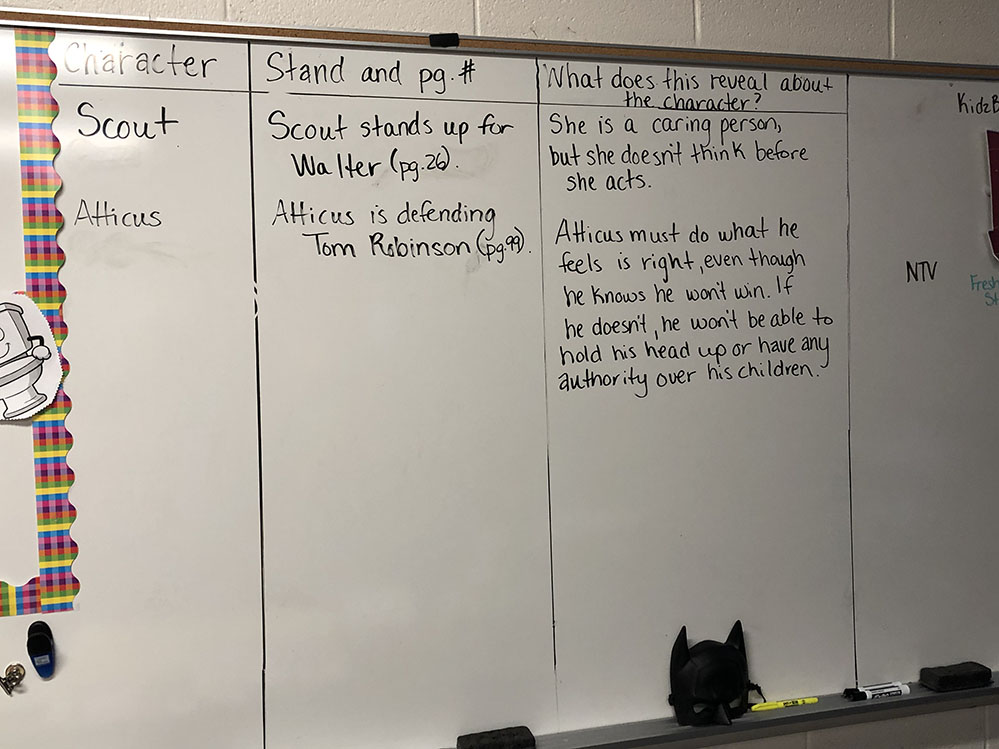 Character
Stand and pg. #
What does this reveal about
the character?
Scout
Scout stands up for
Walter (pg. 26).
She is a caring person,
but she doesn't think before
she acts.
Atticus
Atticus is defending
Tom Robinson (pg. 99).
Atticus must do what he
feels is right, even though
he knows he won't win. If
he doesn't, he won't be able to
hold his head up or have any
authority over his children.
NTV